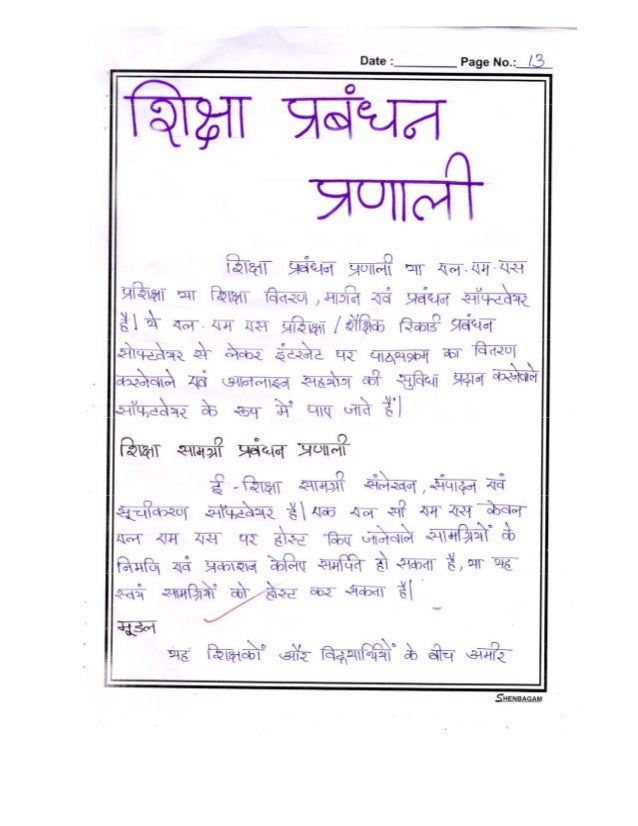 Date :_________ Page No.: 13
शिक्षा प्रबंधन
प्रणाली
शिक्षा प्रबंधन प्रणाली या एल-एम-एस
प्रशिक्षा या शिक्षा वितरण, मार्गन एवं प्रबंधन सॉफ्टवेयर
है। ये एल-एम एस प्रशिक्षा / शैक्षिक रिकार्ड प्रबंधन
सोफ्टवेयर से लेकर इंटरनेट पर पाठ्यक्रम का वितरण
करनेवाले एवं आनलाइन सहयोग की सुविधा प्रदान करनेवाले
सॉफ्टवेयर के रूप में पाए जाते हैं।
शिक्षा सामग्री प्रबंधन प्रणाली
ई-शिक्षा सामग्री संलेखन, संपादन एवं
सूचीकरण सॉफ्टवेयर है। एक एल सी एम एस केवल
एल एम एस पर होस्ट किए जानेवाले सामग्रियों के
निर्माण एवं प्रकाशन केलिए समर्पित हो सकता है, या यह
स्वयं सामग्रियों को होस्ट कर सकता है।
मूडल
यह शिक्षकों और विद्यार्थियों के बीच अमीर
SHENBAGAM